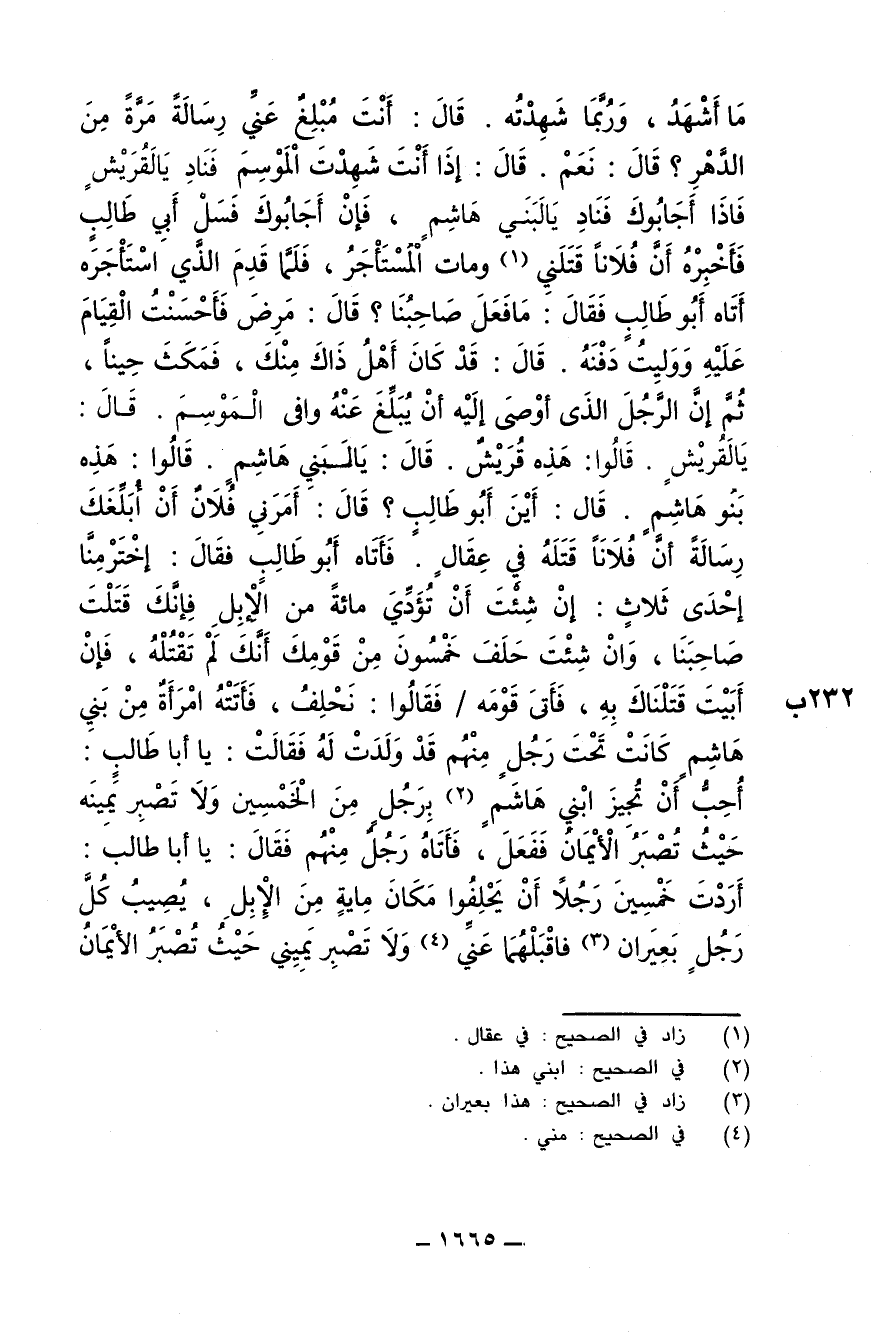 مَا أَشْهَدُ ، وَرُبَّمَا شَهِدْتُه . قَالَ : أَنْتَ مُبْلِغٌ عَنِّي رِسَالَةً مَرَّةً مِنَ
الدَّهْرِ ؟ قَالَ : نَعَمْ . قَالَ : إِذَا أَنْتَ شَهِدْتَ الْمَوْسِمَ فَنَادِ يَالَقُرَيْشٍ
فَاذَا أَجَابُوكَ فَنَادِ يَالَبَنَي هَاشِمٍ ، فَإِنْ أَجَابُوكَ فَسَلْ أَبِي طَالِبٍ
فَأَخْبِرْهُ أَنَّ فُلَاناً قَتَلَنِي (١) ومات الْمُسْتَأْجَرُ ، فَلَمَّا قَدِمَ الذَّي اسْتَأْجَرَه
أَتَاه أَبُو طَالِبٍ فَقَالَ : مَافَعَلَ صَاحِبُنَا ؟ قَالَ : مَرِضَ فَأَحْسَنْتُ الْقِيَامَ
عَلَيْهِ وَوَلِيتُ دَفْنَهُ . قَالَ : قَدْ كَانَ أَهْلُ ذَاكَ مِنْكَ ، فَمَكَثَ حِيناً ،
ثُمَّ إِنَّ الرَّجُلَ الذَى أوْصَى إِلَيْه أنْ يُبَلِّغَ عَنْهُ وافى الْـمَوْسِـمَ . قَـالَ :
يَالَقُريْشٍ . قَالُوا: هَذِه قُرَيْشٌ . قَالَ : يَالَـبَنِي هَاشِمٍ . قَالُوا : هَذِه
بَنُو هَاشِمٍ . قَال : أَيْنَ أَبُو طَالِبٍ ؟ قَالَ : أَمَرَنِي فُلَانٌ أَنْ أُبَلِّغَكَ
رِسَالَةً أنَّ فُلَاناً قَتَلَهُ فِي عِقَالٍ . فَأَتَاه أَبُو طَالِبٍ فقَالَ : إِخْتَرْمِنَّا
إِحْدَى ثَلاثٍ : إِنْ شِئْتَ أَنْ تُؤَدِّيَ مائةً من الْإِبِلِ فِإنَّكَ قَتَلْتَ
صَاحِبَنَا ، وَانْ شِئْتَ حَلَفَ خَمْسُونَ مِنْ قَوْمِكَ أَنَّكَ لَمْ تَقْتُلْهُ ، فَإِنْ
أَبَيْتَ قَتَلْنَاكَ بِهِ ، فَأَتَى قَوْمَه / فَقَالُوا : نَحْلِفُ ، فَأَتَتْهُ امْرَأَةٌ مِنْ بَنِي
٢٣٢ب
هَاشِمٍ كَانَتْ تَحْتَ رَجُلٍ مِنْهُم قَدْ وَلَدَتْ لَهُ فَقَالَتْ : يا أبا طَالبٍ :
أُحِبُّ أَنْ تُجِيزَ ابْنِي هَاشَمٍ (٢) بِرَجُلٍ مِنَ الخَمْسِين وَلَا تَصْبِر يَمِينَه
حَيْثُ تُصْبَرُ الْأيْمَانُ فَفَعَلَ ، فَأَتَاهُ رَجُلٌ مِنْهُم فَقَالَ : يا أبا طالب :
أَرَدْتَ خَمْسِينَ رَجُلًا أَنْ يَحْلِفُوا مَكَانَ مِايةٍ مِنَ الْإِبِلِ ، يُصِيبُ كُلَّ
رَجُلٍ بَعِيَران (٣) فاقْبَلْهُمَا عَنِّي (٤) وَلَا تَصْبِر يَمِينِي حَيْثُ تُصْبَرُ الأيْمَانُ
(١) زاد في الصحيح : في عقال .
(٢) في الصحيح : ابني هذا .
(٣) زاد في الصحيح : هذا بعيران .
(٤) في الصحيح : مني .
ـ ١٦٦٥ ـ